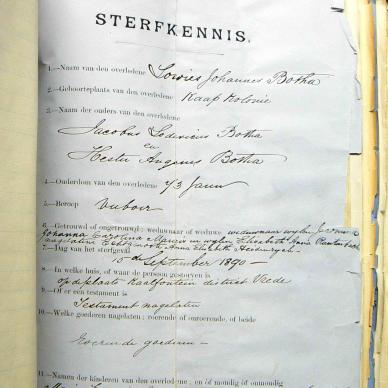 STERFKENNIS.
1.—Naam van den overledene Lowies Johannes Botha
2.—Geboorteplaats van den overledene Kaap Kolonie
3.—Naam der ouders van den overledene
Jacobus Lodevicus Botha
en
Hester Botha
4.—Ouderdom van den overledene 73 Jaren
5.—Beroep
6.—Getrouwd of ongetrouwd; weduwnaar of weduwe. weduwnaar wylen
Johanna Carolina en wylen Elizabeth
nagelaten Anna Elizabeth
7.—Dag van het sterfgeval
15de September 1890 —
8.—In welke huis, of waar de persoon gestorven is
op de plaats Kaalfontein district Vrede
9.—Of er een testament is
Testament nagelaten
10.—Welke goederen nagelaten; roerende of onroerende, of beide
Roerende goederen —
11.—Namen der kinderen van den overledene, en òf mondig òf onmondig